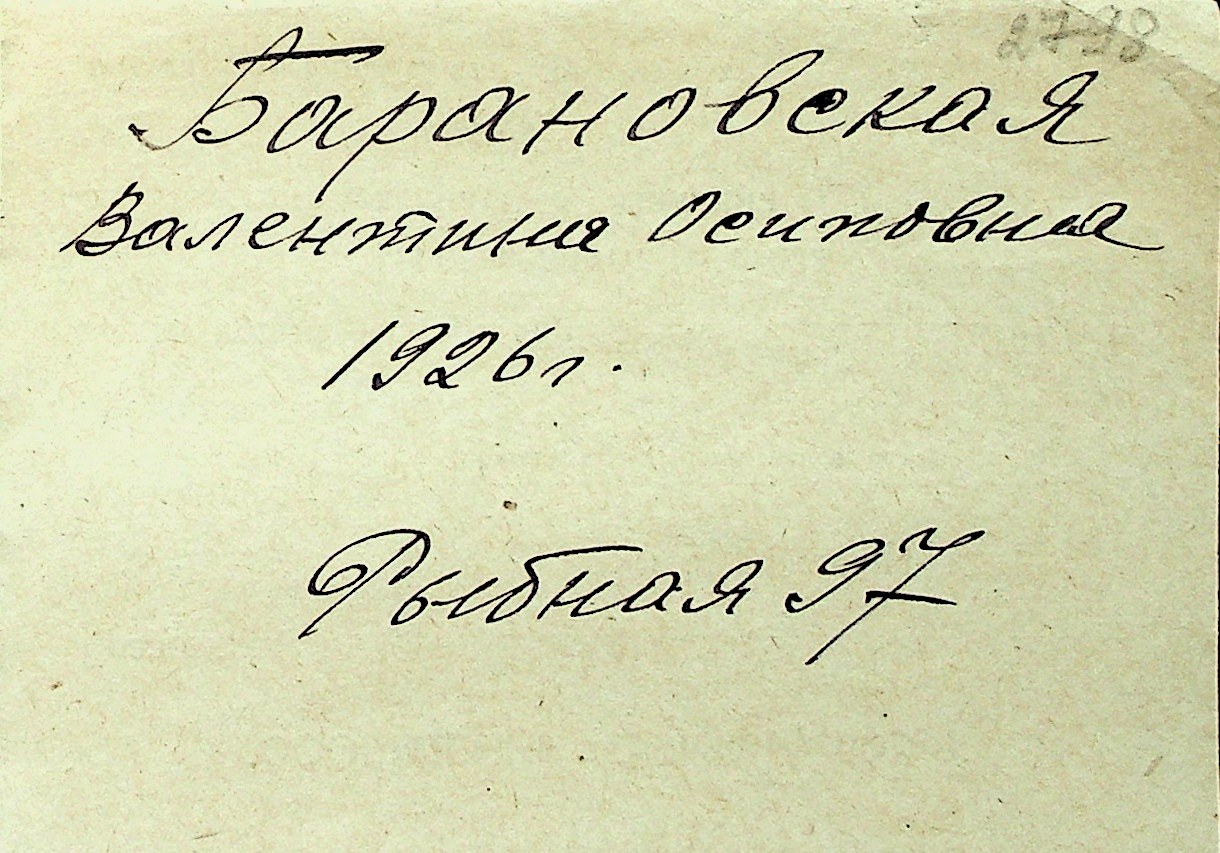 2798
Барановская
Валентина Осиповна
1926г.
Рыбная 97